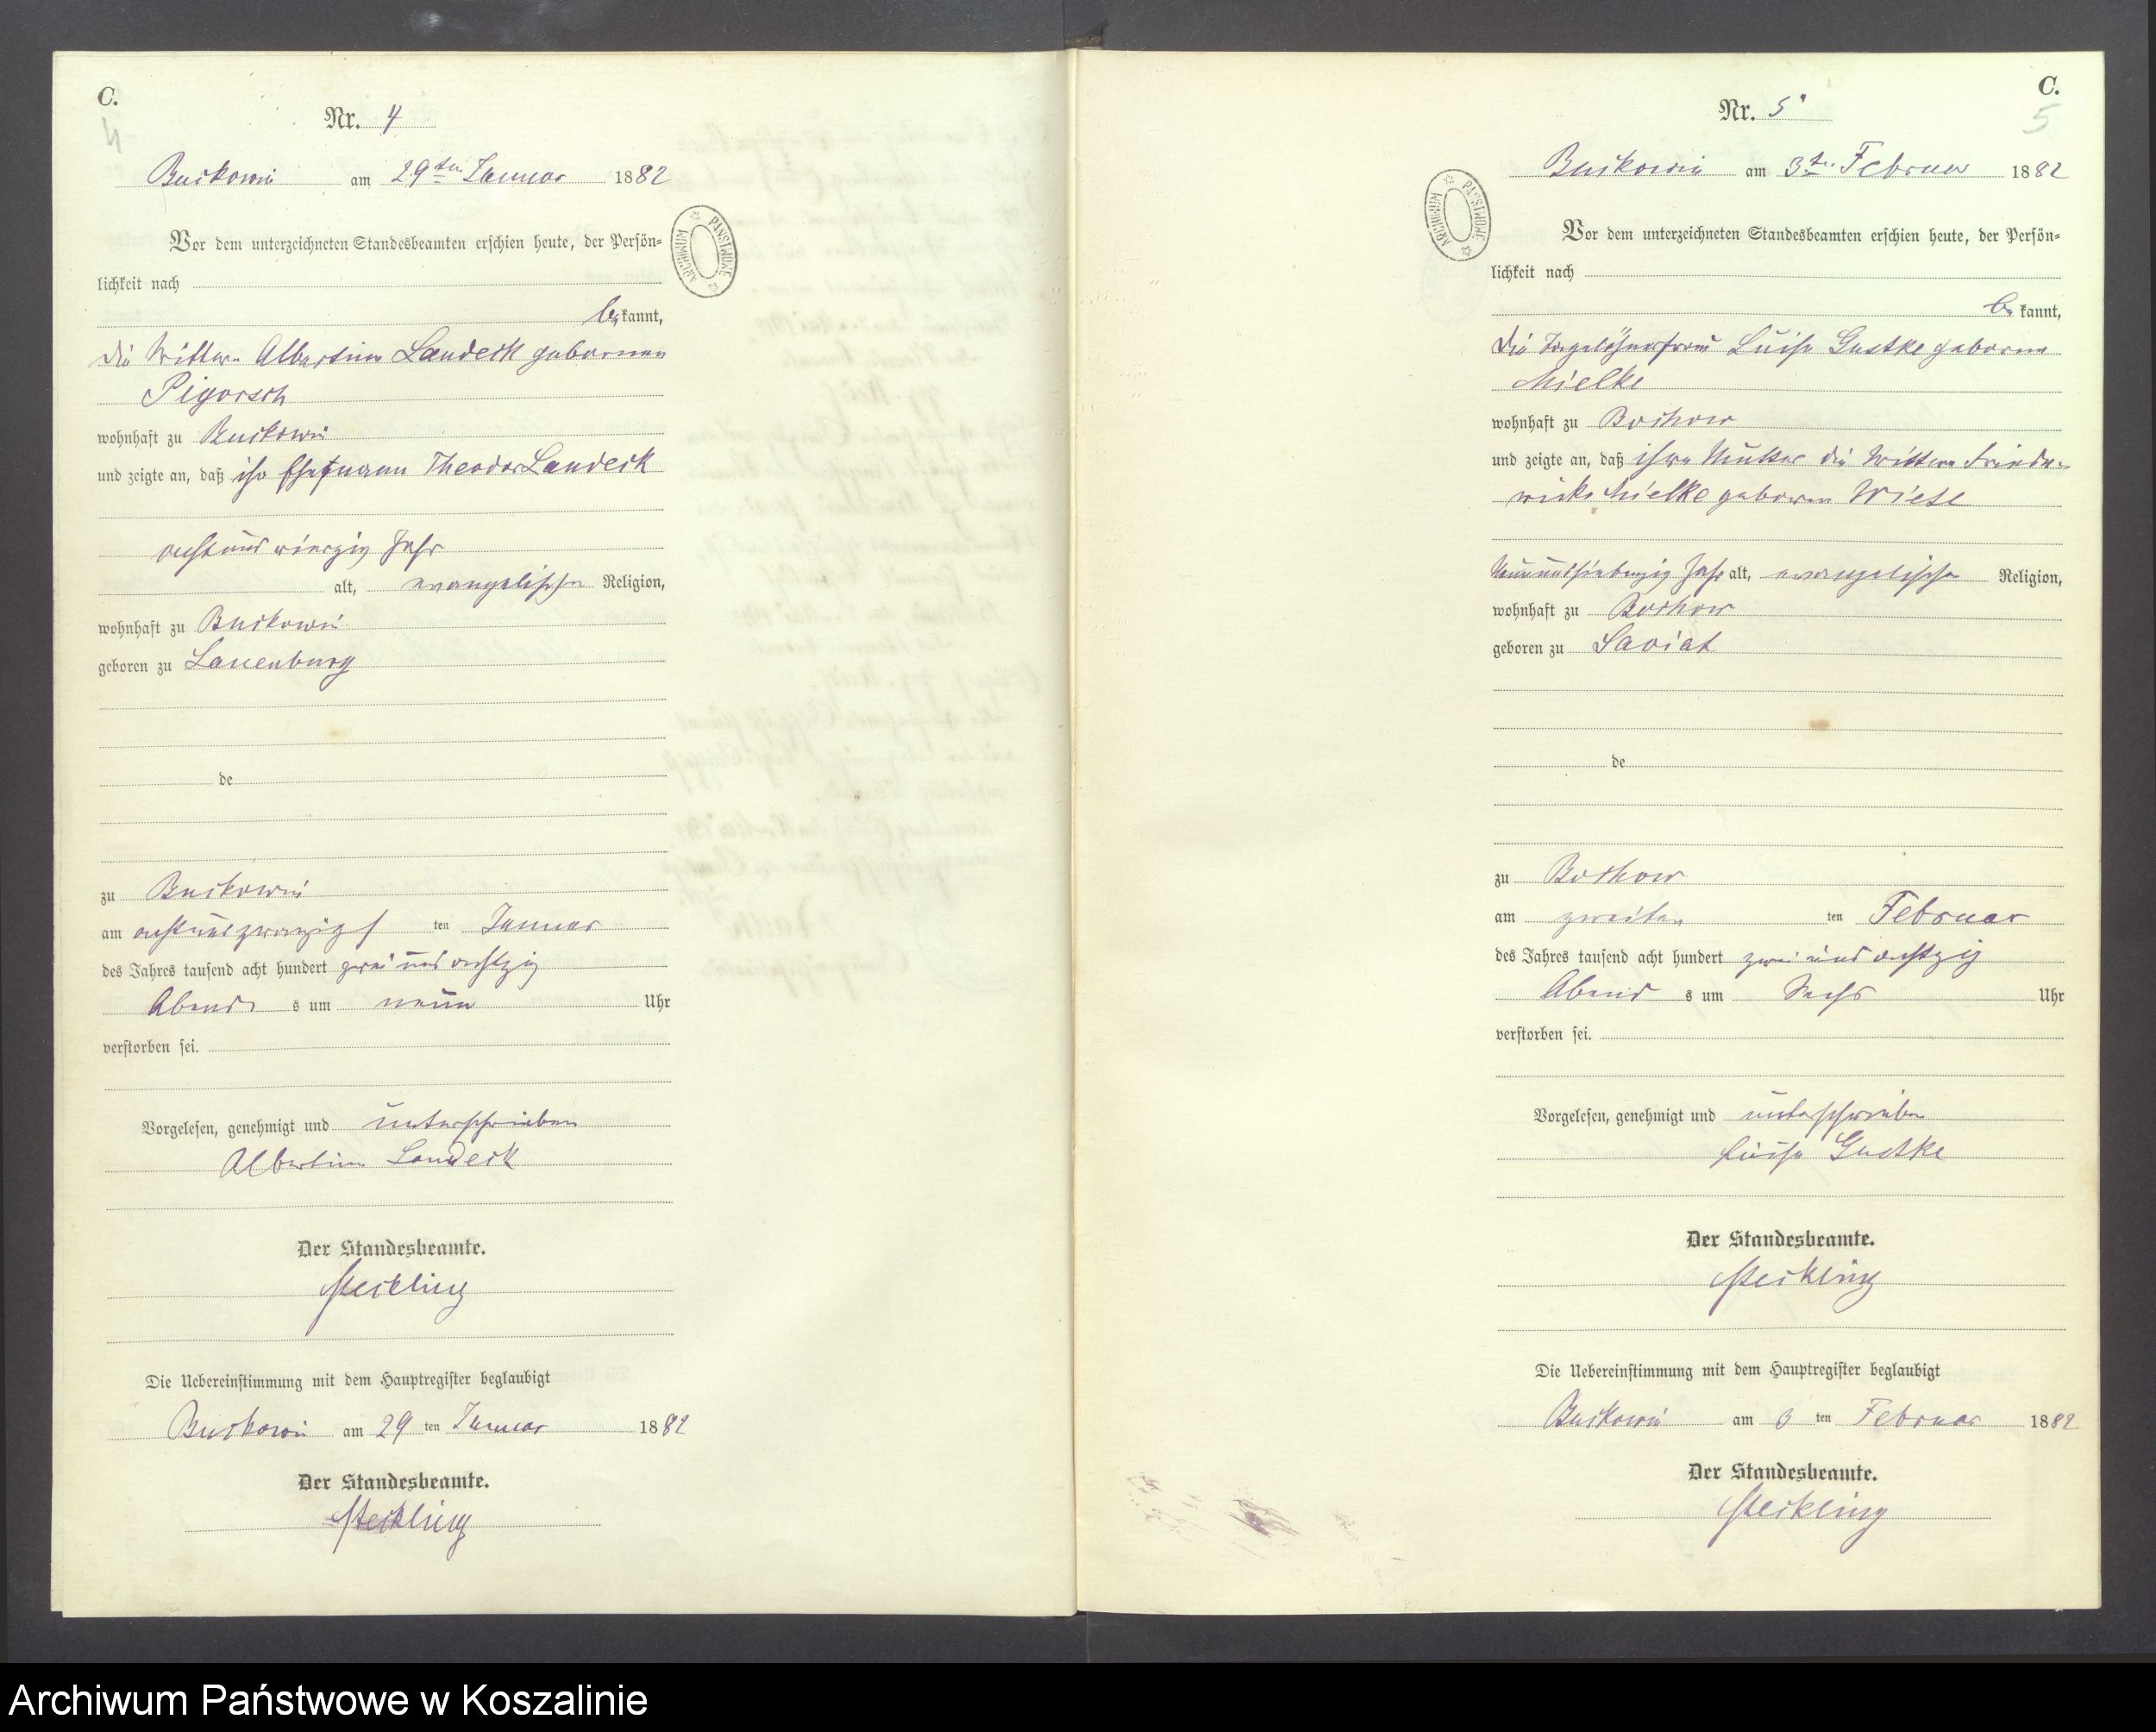 C.
4
Nr. 4
Buckowin am 29ten Januar 1882
Vor dem unterzeichneten Standesbeamten erschien heute, der Persön-
lichkeit nach
be kannt,
die Wittwe Albertine Landeck geborenen
Pigorsch
wohnhaft zu Buckowin
und zeigte an, daß ihr Ehemann Theodor Landeck
achtundvierzig Jahr
alt, evangelischer Religion,
wohnhaft zu Buckowin
geboren zu Lauenburg
de
zu Buckowin
am achtundzwanzigs ten Januar
des Jahres tausend acht hundert zwei und achtzig
Abends s um neun Uhr
verstorben sei.
Vorgelesen, genehmigt und unterschrieben
Albertine Landeck
Der Standesbeamte.
Meckling
Die Uebereinstimmung mit dem Hauptregister beglaubigt
Buckowin am 29 ten Januar 1882
Der Standesbeamte.
Meckling
ARCHIWUM PAŃSTWOWE
C.
5
Nr. 5
Buckowin am 3ten Februar 1882
Vor dem unterzeichneten Standesbeamten erschien heute, der Persön-
lichkeit nach
be kannt,
die Tagelöhnerfrau Luise Gustke geborene
Mielke
wohnhaft zu Bochow
und zeigte an, daß ihre Mutter die Wittwe Friede-
ricke Mielke geboren Wiese
Neunundsiebenzig Jahr alt, evangelischer Religion,
wohnhaft zu Bochow
geboren zu Saviat
de
zu Bochow
am zweiten ten Februar
des Jahres tausend acht hundert zwei und achtzig
Abend s um Sechs Uhr
verstorben sei.
Vorgelesen, genehmigt und unterschrieben
Luise Gustke
Der Standesbeamte.
Meckling
Die Uebereinstimmung mit dem Hauptregister beglaubigt
Buckowin am 3 ten Februar 1882
Der Standesbeamte.
Meckling
ARCHIWUM PAŃSTWOWE
Archiwum Państwowe w Koszalinie